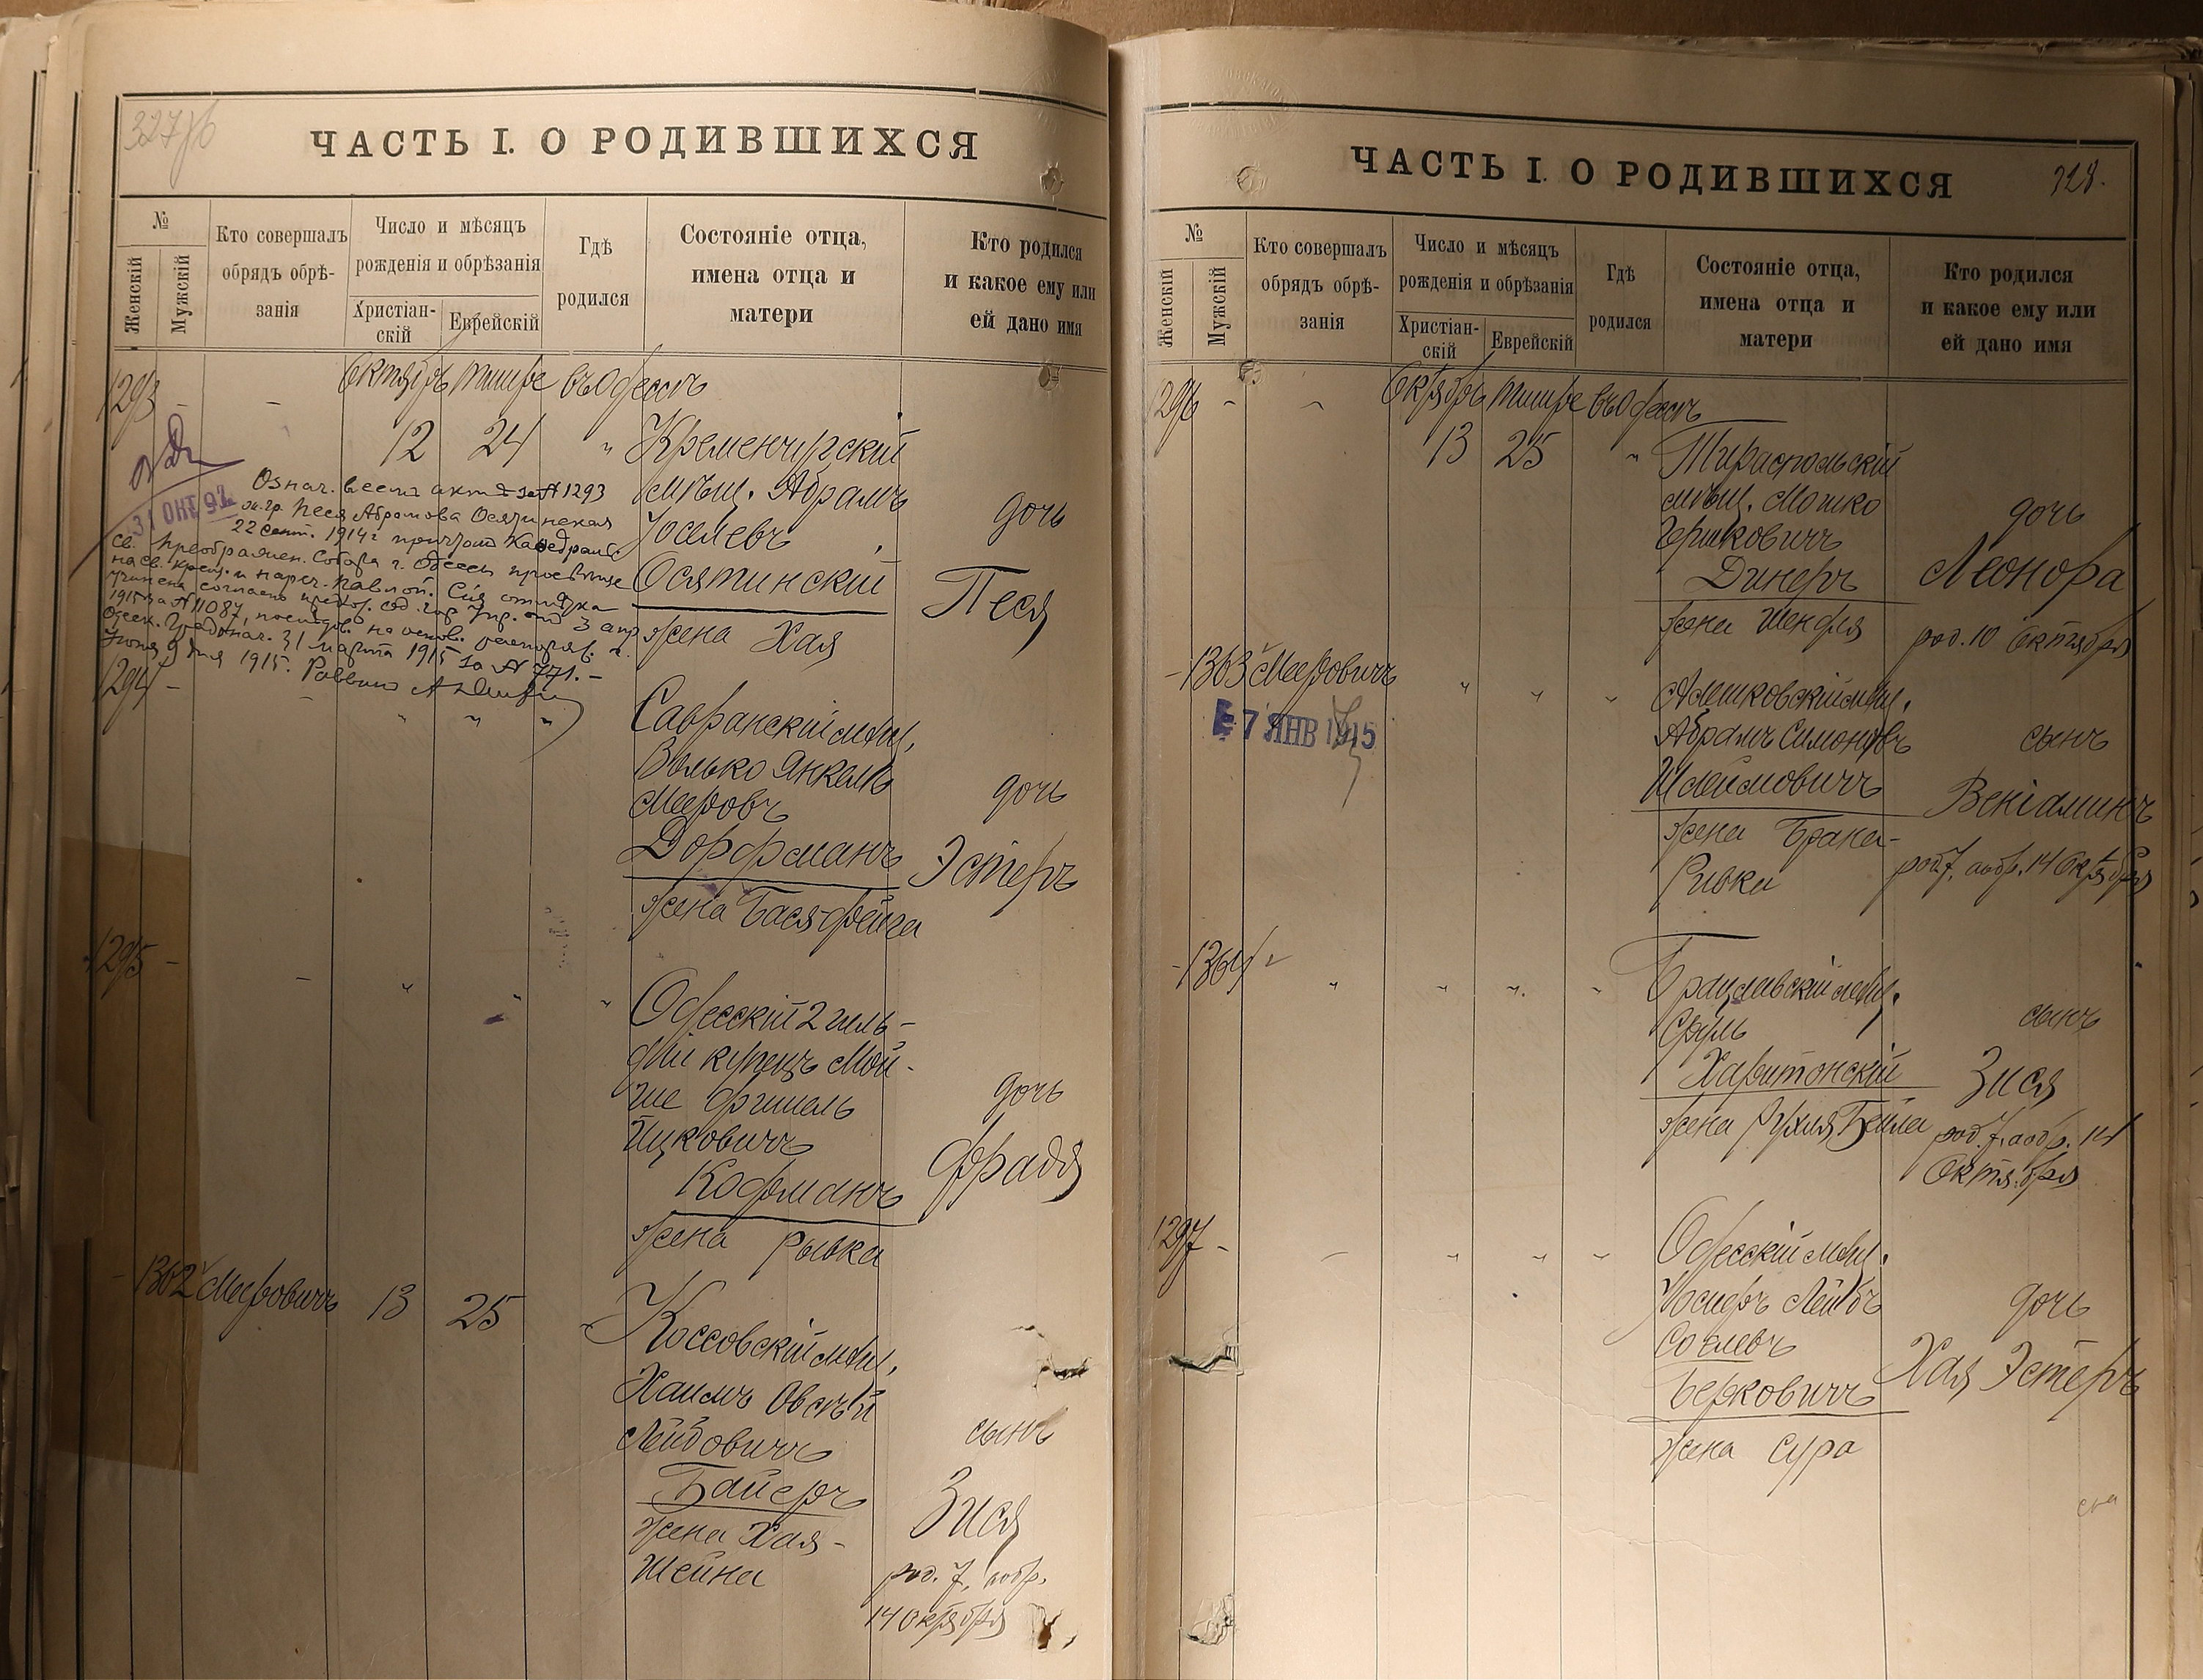 327об
ЧАСТЬ I. О РОДИВШИХСЯ
№
Женскій
Мужскій
Кто совершалъ
обрядъ обрѣ-
занія
Число и мѣсяцъ
рожденія и обрѣзанія
Христіан-
скій
Еврейскій
Гдѣ
родился
Состояніе отца,
имена отца и
матери
Кто родился
и какое ему или
ей дано имя
1293 - - Октябрь Тишре въ Одессѣ
12 24 " Кременчугскій
мѣщ. Абрамъ
Іоселевъ
Осятинскій
жена Хая
дочь
Песя
31 ОКТ 9
Означ. въ семъ актѣ за № 1293
Песя Абрамова Осятинская
22 Сент. 1914 г. причтомъ Кафедрал
Св. Преображен. Собора г. Одессы просвѣщ
на св. крещ. и нареч. Павлой. Сія отмѣтка
учинена согласно предпис. гор. Упр. отъ 3 апр
1915 за № 11087, послѣдов. на основ. распоряж. г.
Одесск. Градонач. 31 марта 1915 за № 771. -
Іюня 9 дня 1915. Раввинъ
1294 - - " " "
Савранскій мѣщ.
Волько Янкель
Мееровъ
Дорфманъ
жена Бася-Фейга
дочь
Эстеръ
1295 - - " " "
Одесскій 2 гиль-
діи купецъ Мой-
ше Фишель
Ицковичъ
Кофманъ
жена Рывка
дочь
Фрадя
- 1302 Мееровичъ 13 25 "
Коссовскій мѣщ.
Хаимъ Овсѣй
Лейбовичъ
Байеръ
жена Хая-
Шейна
сынъ
Зися
род. 7, а обр.
14 Октября
ЧАСТЬ I. О РОДИВШИХСЯ
328.
№
Женскій
Мужскій
Кто совершалъ
обрядъ обрѣ-
занія
Число и мѣсяцъ
рожденія и обрѣзанія
Христіан-
скій
Еврейскій
Гдѣ
родился
Состояніе отца,
имена отца и
матери
Кто родился
и какое ему или
ей дано имя
1296 - - Октябрь Тишре въ Одессѣ
13 25 " Тираспольскій
мѣщ. Мошко
Гершковичъ
Динеръ
жена Шендля
дочь
Леонора
род. 10 Октября
- 1303 Мееровичъ " " "
7 ЯНВ 1915
Алешковскій мѣщ.
Абрамъ Симоновъ
Шлеймовичъ
жена Брана-
Ривка
сынъ
Веніаминъ
род. 7, а обр. 14 Октября
- 1304 " " " "
Брацлавскій мѣщ.
Сруль
Харитонскій
жена Рухля Бейла
сынъ
Зися
род. 7, а обр. 14
Октября
1297 - - " " "
Одесскій мѣщ.
Іосифъ Лейбъ
Берковичъ
жена Сура
дочь
Хая Эстеръ